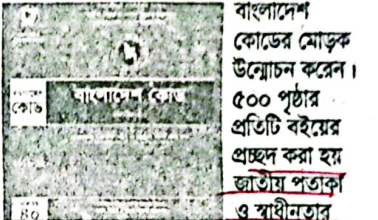 বাংলাদেশ কোড
কোড
৪০
বাংলাদেশ
কোডের মোড়ক
উন্মোচন করেন।
৫০০ পৃষ্ঠার
প্রতিটি বইয়ের
প্রচ্ছদ করা হয়
জাতীয় পতাকা
ও স্বাধীনতার